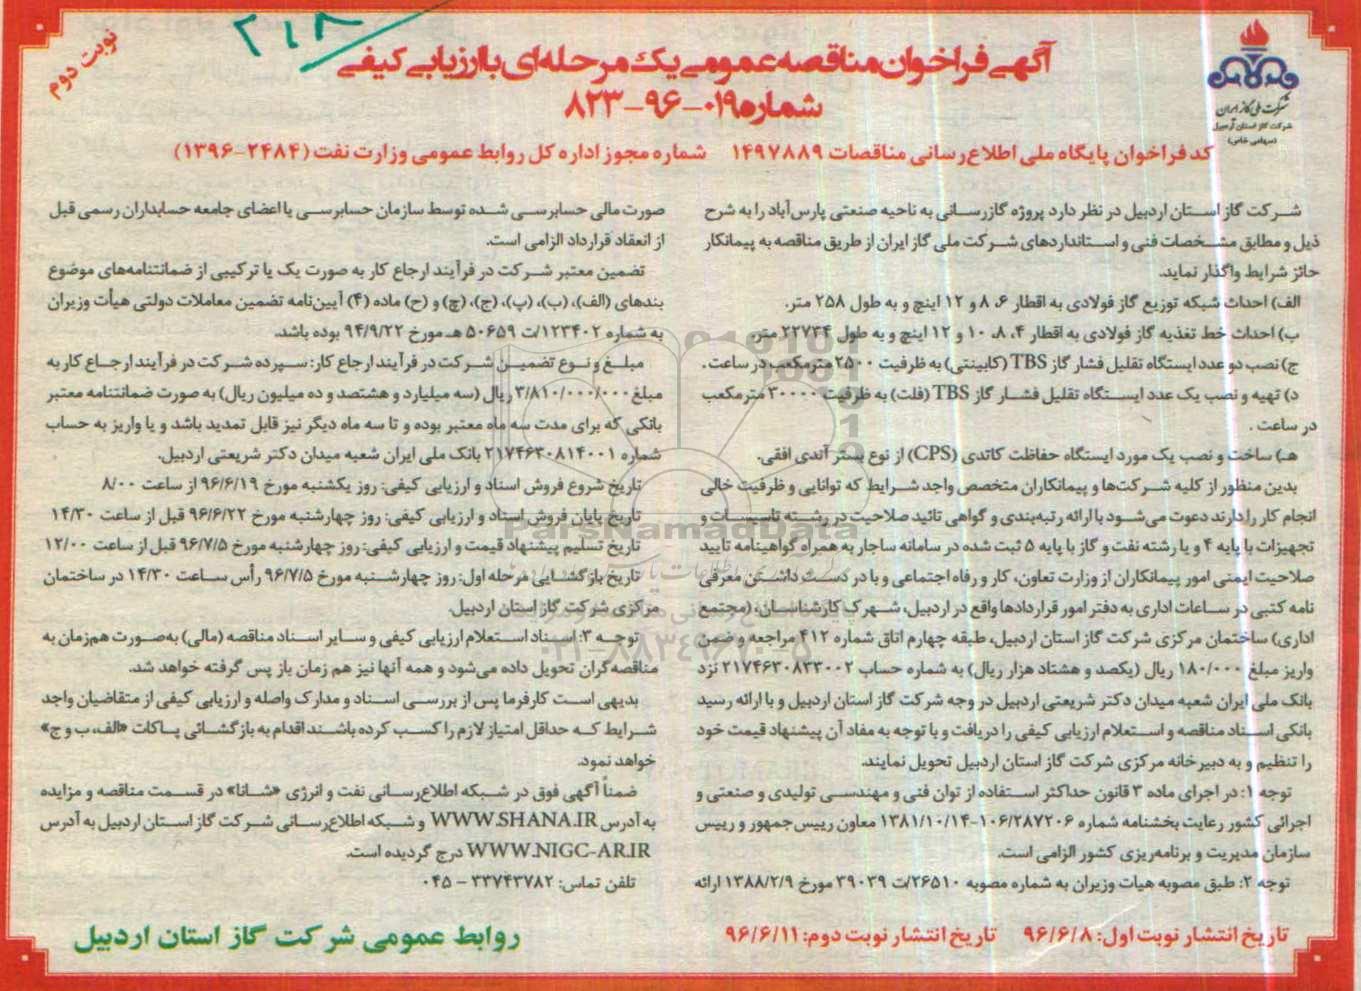 ۲۱۸
نوبت دوم
شرکت ملی گاز ایران
شرکت گاز استان اردبیل
(سهامی خاص)
آگهی فراخوان مناقصه عمومی یک مرحله‌ای با ارزیابی کیفی
شماره ۰۱۹-۹۶-۸۲۳
کد فراخوان پایگاه ملی اطلاع‌رسانی مناقصات ۱۴۹۷۸۸۹ شماره مجوز اداره کل روابط عمومی وزارت نفت (۲۴۸۴-۱۳۹۶)
شرکت گاز استان اردبیل در نظر دارد پروژه گازرسانی به ناحیه صنعتی پارس‌آباد را به شرح
ذیل و مطابق مشخصات فنی و استانداردهای شرکت ملی گاز ایران از طریق مناقصه به پیمانکار
حائز شرایط واگذار نماید.
الف) احداث شبکه توزیع گاز فولادی به اقطار ۶، ۸ و ۱۲ اینچ و به طول ۲۵۸ متر.
ب) احداث خط تغذیه گاز فولادی به اقطار ۴، ۸، ۱۰ و ۱۲ اینچ و به طول ۲۲۷۳۴ متر.
ج) نصب دو عدد ایستگاه تقلیل فشار گاز TBS (کابینتی) به ظرفیت ۲۵۰۰ مترمکعب در ساعت.
د) تهیه و نصب یک عدد ایستگاه تقلیل فشار گاز TBS (فلت) به ظرفیت ۳۰۰۰۰ مترمکعب
در ساعت.
هـ) ساخت و نصب یک مورد ایستگاه حفاظت کاتدی (CPS) از نوع بستر آندی افقی.
بدین منظور از کلیه شرکت‌ها و پیمانکاران متخصص واجد شرایط که توانایی و ظرفیت خالی
انجام کار را دارند دعوت می‌شود با ارائه رتبه‌بندی و گواهی تائید صلاحیت در رشته تاسیسات و
تجهیزات با پایه ۴ و یا رشته نفت و گاز با پایه ۵ ثبت شده در سامانه ساجار به همراه گواهینامه تایید
صلاحیت ایمنی امور پیمانکاران از وزارت تعاون، کار و رفاه اجتماعی و با در دست داشتن معرفی
نامه کتبی در ساعات اداری به دفتر امور قراردادها واقع در اردبیل، شهرک کارشناسان، (مجتمع
اداری) ساختمان مرکزی شرکت گاز استان اردبیل، طبقه چهارم اتاق شماره ۴۱۲ مراجعه و ضمن
واریز مبلغ ۱۸۰/۰۰۰ ریال (یکصد و هشتاد هزار ریال) به شماره حساب ۲۱۷۴۶۳۰۸۳۳۰۰۲ نزد
بانک ملی ایران شعبه میدان دکتر شریعتی اردبیل در وجه شرکت گاز استان اردبیل و با ارائه رسید
بانکی اسناد مناقصه و استعلام ارزیابی کیفی را دریافت و با توجه به مفاد آن پیشنهاد قیمت خود
را تنظیم و به دبیرخانه مرکزی شرکت گاز استان اردبیل تحویل نمایند.
توجه ۱: در اجرای ماده ۳ قانون حداکثر استفاده از توان فنی و مهندسی تولیدی و صنعتی و
اجرائی کشور رعایت بخشنامه شماره ۱۰۶/۲۸۷۲۰۶-۱۳۸۱/۱۰/۱۴ معاون رییس‌جمهور و رییس
سازمان مدیریت و برنامه‌ریزی کشور الزامی است.
توجه ۲: طبق مصوبه هیات وزیران به شماره مصوبه ۲۶۵۱۰/ت ۳۹۰۳۹ مورخ ۱۳۸۸/۲/۹ ارائه
صورت مالی حسابرسی شده توسط سازمان حسابرسی یا اعضای جامعه حسابداران رسمی قبل
از انعقاد قرارداد الزامی است.
تضمین معتبر شرکت در فرآیند ارجاع کار به صورت یک یا ترکیبی از ضمانتنامه‌های موضوع
بندهای (الف)، (ب)، (پ)، (ج)، (چ) و (ح) ماده (۴) آیین‌نامه تضمین معاملات دولتی هیأت وزیران
به شماره ۱۲۳۴۰۲/ت ۵۰۶۵۹ هـ مورخ ۹۴/۹/۲۲ بوده باشد.
مبلغ و نوع تضمین شرکت در فرآیند ارجاع کار: سپرده شرکت در فرآیند ارجاع کار به
مبلغ ۳/۸۱۰/۰۰۰/۰۰۰ ریال (سه میلیارد و هشتصد و ده میلیون ریال) به صورت ضمانتنامه معتبر
بانکی که برای مدت سه ماه معتبر بوده و تا سه ماه دیگر نیز قابل تمدید باشد و یا واریز به حساب
شماره ۲۱۷۴۶۳۰۸۱۴۰۰۱ بانک ملی ایران شعبه میدان دکتر شریعتی اردبیل.
تاریخ شروع فروش اسناد و ارزیابی کیفی: روز یکشنبه مورخ ۹۶/۶/۱۹ از ساعت ۸/۰۰
تاریخ پایان فروش اسناد و ارزیابی کیفی: روز چهارشنبه مورخ ۹۶/۶/۲۲ قبل از ساعت ۱۴/۳۰
تاریخ تسلیم پیشنهاد قیمت و ارزیابی کیفی: روز چهارشنبه مورخ ۹۶/۷/۵ قبل از ساعت ۱۲/۰۰
تاریخ بازگشایی مرحله اول: روز چهارشنبه مورخ ۹۶/۷/۵ رأس ساعت ۱۴/۳۰ در ساختمان
مرکزی شرکت گاز استان اردبیل.
توجه ۳: اسناد استعلام ارزیابی کیفی و سایر اسناد مناقصه (مالی) به‌صورت هم‌زمان به
مناقصه‌گران تحویل داده می‌شود و همه آنها نیز هم زمان باز پس گرفته خواهد شد.
بدیهی است کارفرما پس از بررسی اسناد و مدارک واصله و ارزیابی کیفی از متقاضیان واجد
شرایط که حداقل امتیاز لازم را کسب کرده باشند اقدام به بازگشائی پاکات «الف، ب و ج»
خواهد نمود.
ضمناً آگهی فوق در شبکه اطلاع‌رسانی نفت و انرژی «شانا» در قسمت مناقصه و مزایده
به آدرس WWW.SHANA.IR و شبکه اطلاع‌رسانی شرکت گاز استان اردبیل به آدرس
WWW.NIGC-AR.IR درج گردیده است.
تلفن تماس: ۳۳۷۴۳۷۸۲ - ۰۴۵
تاریخ انتشار نوبت اول: ۹۶/۶/۸ تاریخ انتشار نوبت دوم: ۹۶/۶/۱۱
روابط عمومی شرکت گاز استان اردبیل
ParsNamadData
۰۲۱-۸۸۳۴۹۶۷۰-۵